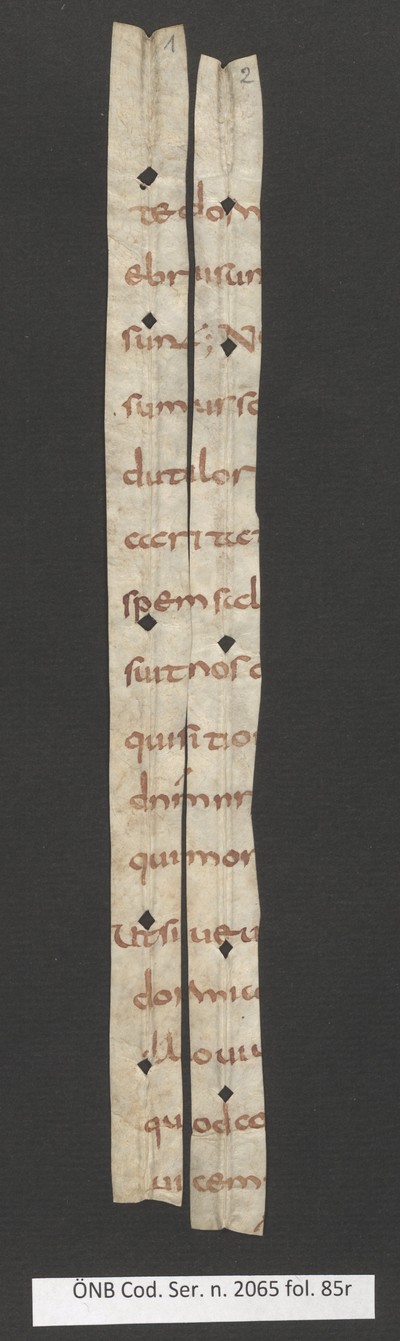 1 2
te dom
ebriisun
sunt; N
sumus so
dutilor
accritat
spem sal
suit nos a
quisitio
dnm nr
qui mor
Utsi ueu
dormia
illo uiu
quod co
uicem
ÖNB Cod. Ser. n. 2065 fol. 85r